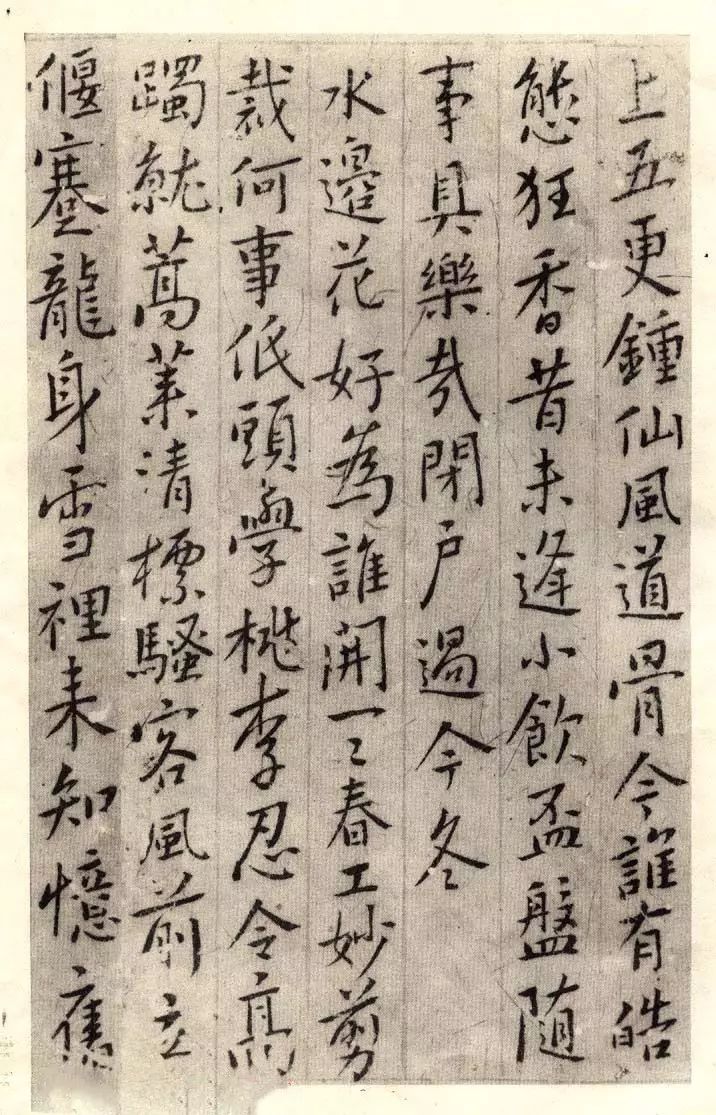 上五更鍾仙風道骨今誰有皓
態狂香昔未逢小飲盃盤隨
事具樂哉閉戶過今冬
水邊花好為誰開一〻春工妙剪
裁何事低頭學桃李忍令高
躅就蒿萊清標騷客風前立
偃蹇龍身雪裡来知憶